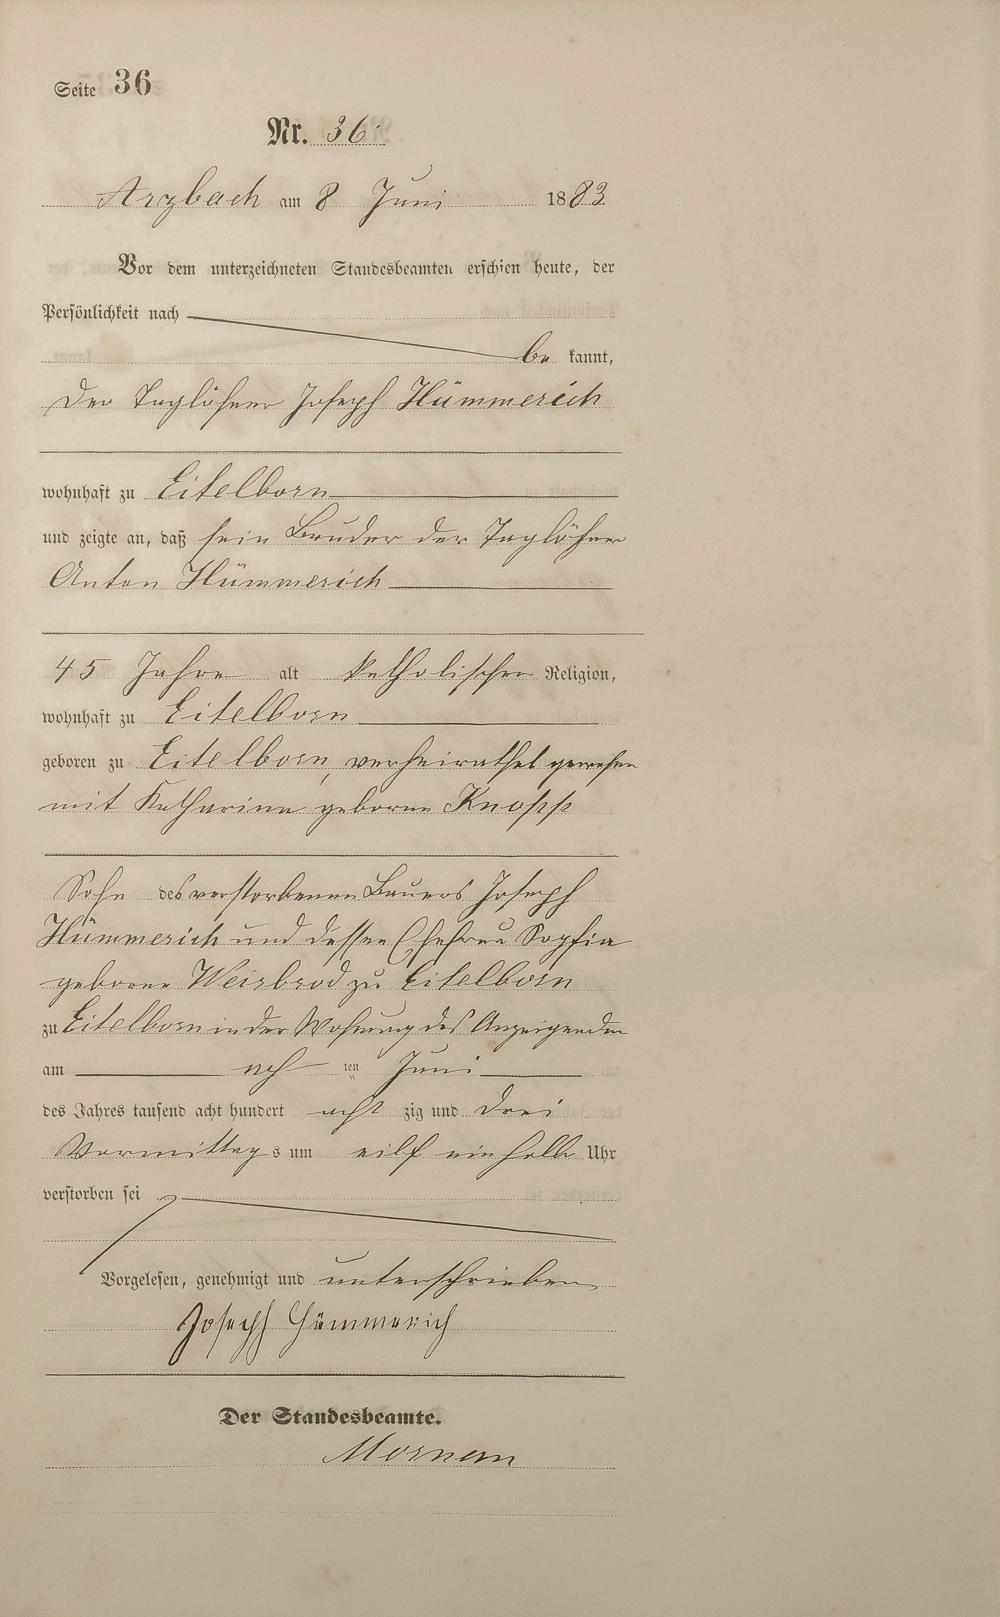 Seite 36
Nr. 36.
Arzbach am 8 Juni 1883.
Vor dem unterzeichneten Standesbeamten erschien heute, der
Persönlichkeit nach
be kannt,
der Taglöhner Joseph Hümmerich
wohnhaft zu Eitelborn
und zeigte an, daß sein Bruder der Taglöhner
Anton Hümmerich
45 Jahre alt katholischer Religion,
wohnhaft zu Eitelborn
geboren zu Eitelborn, verheirathet gewesen
mit Katharina geborne Knopp
Sohn des verstorbenen Bauers Joseph
Hümmerich und dessen Ehefrau Sophia
geborne Weisbrod zu Eitelborn
zu Eitelborn in der Wohnung des Anzeigenden
am ach ten Juni
des Jahres tausend acht hundert acht zig und drei
Vormittags um eilf ein halb Uhr
verstorben sei
Vorgelesen, genehmigt und unterschrieben
Joseph Hümmerich
Der Standesbeamte.